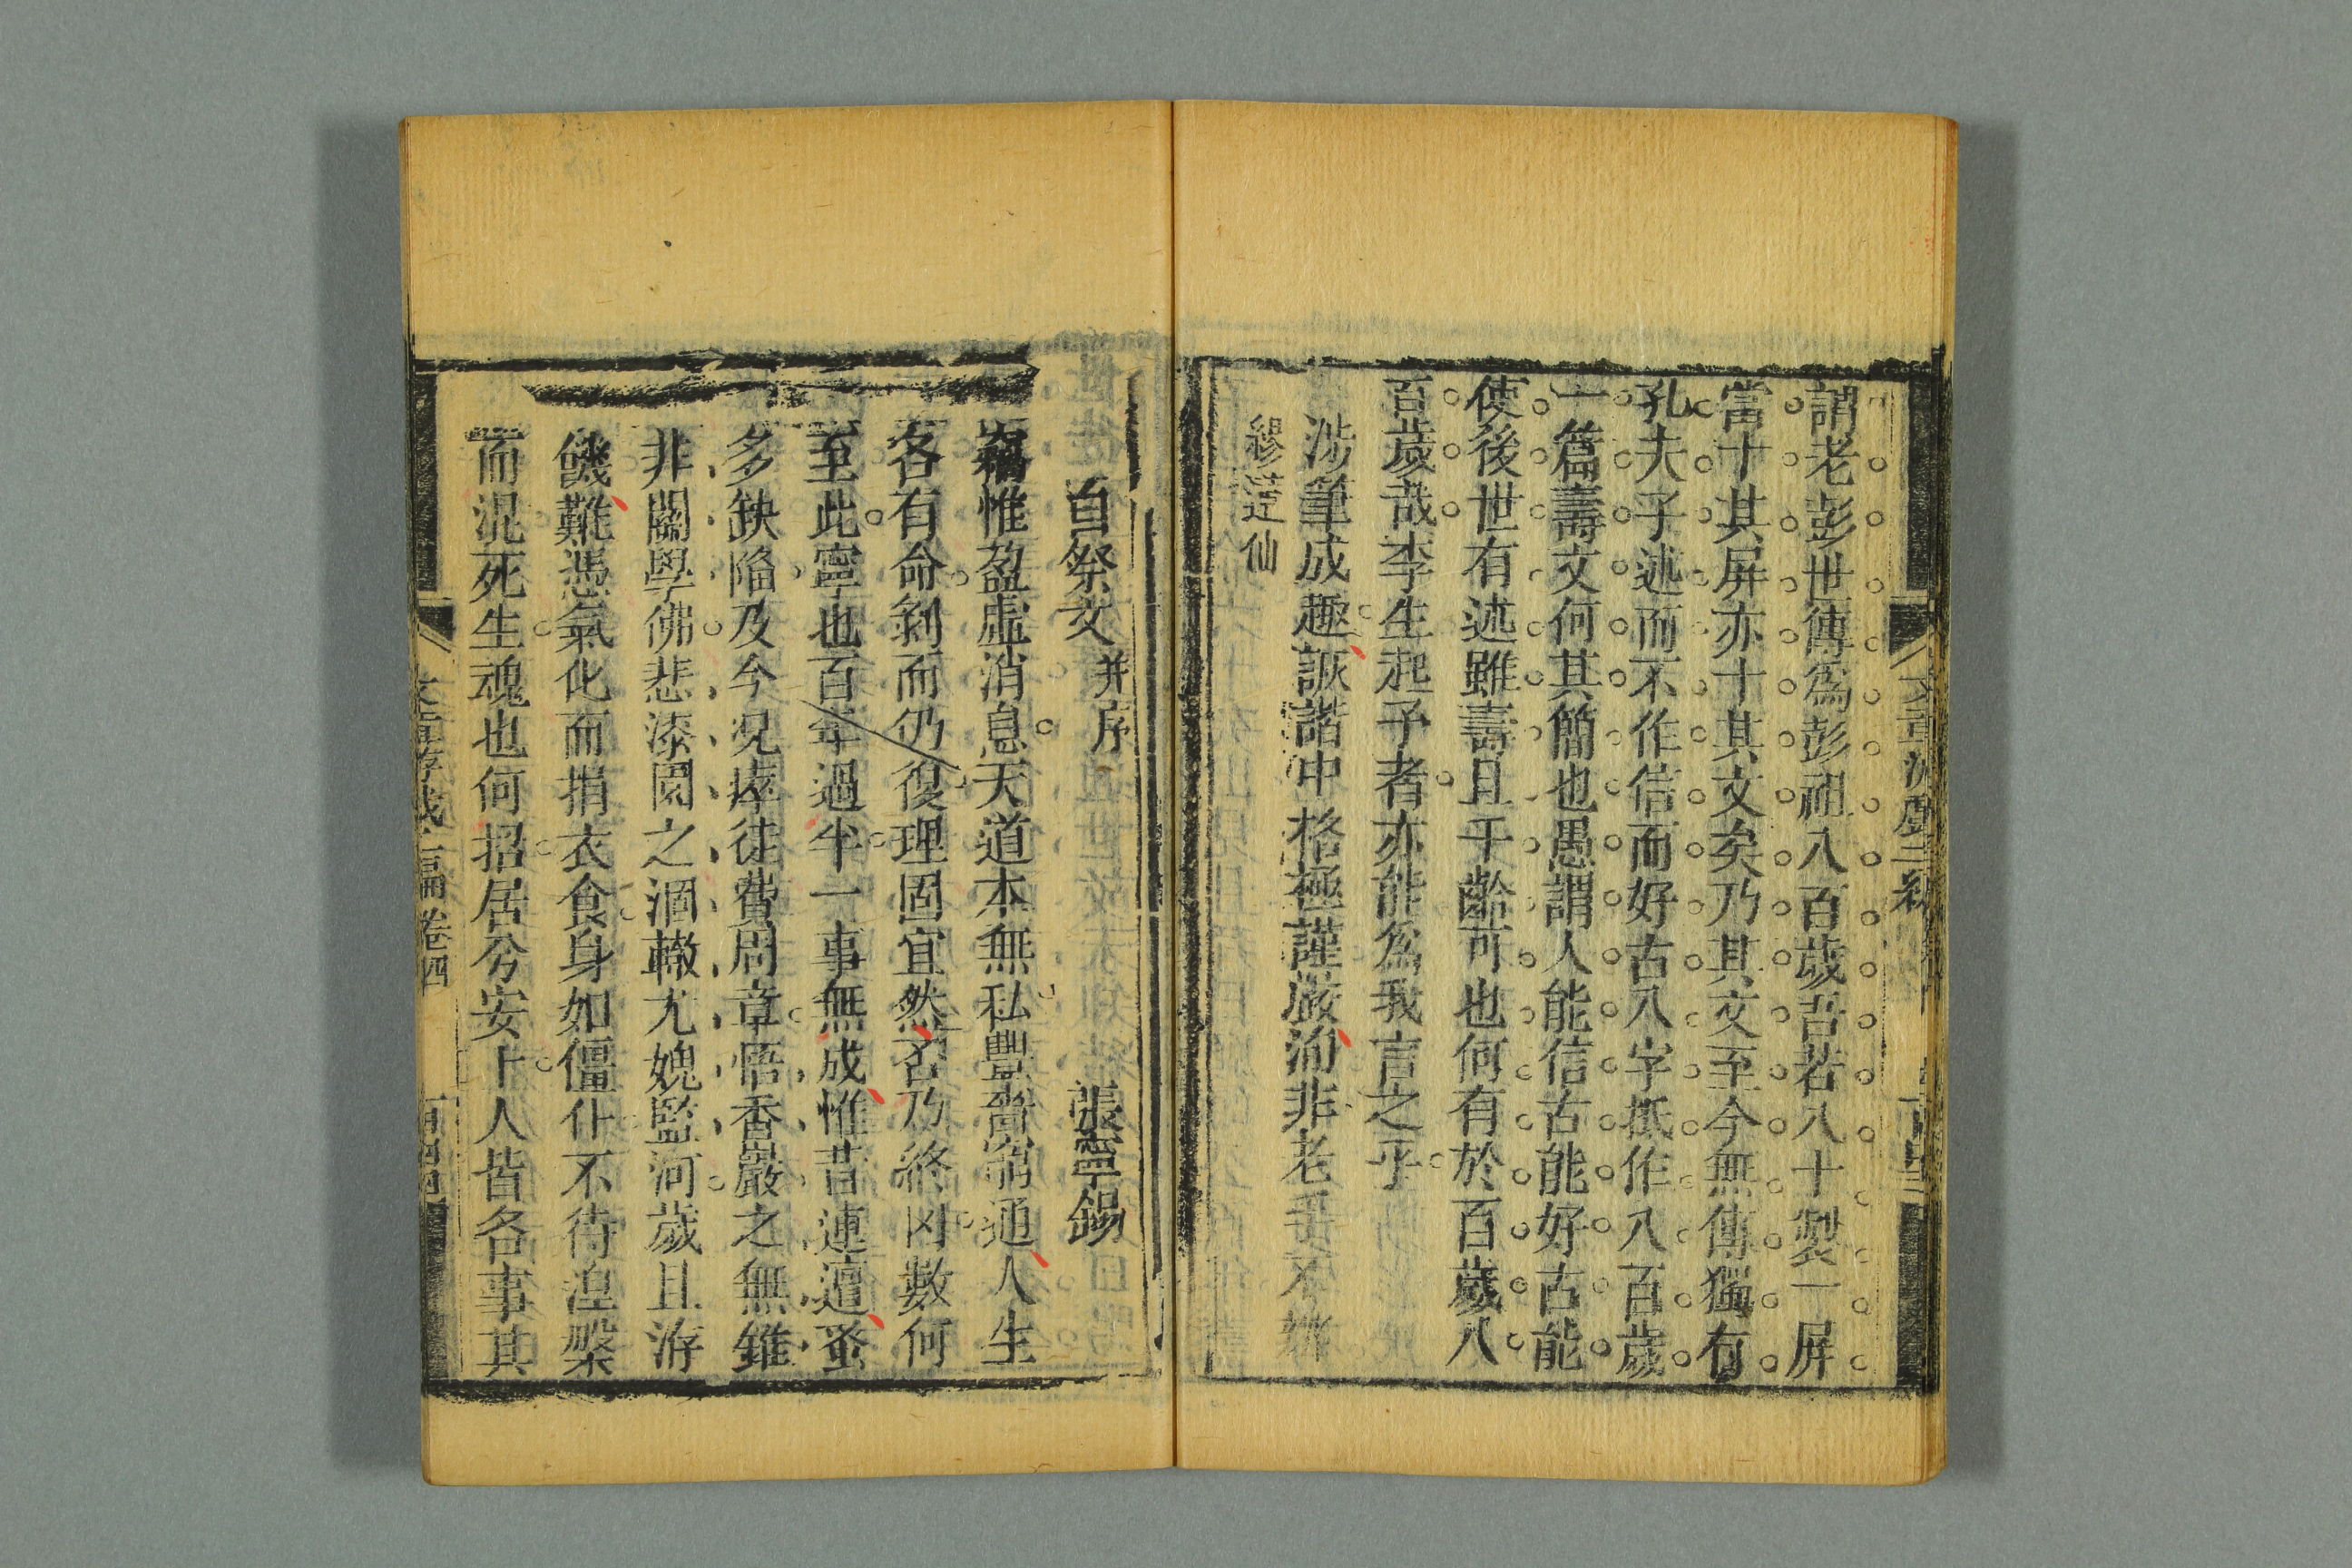 謂老彭世傳爲彭祖八百歲吾若八十製一屏
當十其屏亦十其文矣乃其文至今無傳獨有
孔夫子述而不作信而好古八字抵作八百歲
一篇壽文何其簡也愚謂人能信古能好古能
使後世有述雖壽且千齡可也何有於百歲八
百歲哉李生起予者亦能爲我言之乎
涉筆成趣詼諧中格極謹嚴洵非老手不辦
繆蓮仙
自祭文 并序
張寧錫
竊惟盈虛消息天道本無私豐嗇窮通人生
各有命剝而仍復理固宜然否乃終凶數何
至此寧也百年過半一事無成惟昔連邅蚤
多缺陷及今況瘁徒費周章悟香嚴之無錐
非關學佛悲漆園之涸轍尤媿監河歲且洊
饑難憑氣化而捐衣食身如僵仆不待湟槃
而混死生魂也何招居兮安卜人皆各事其
卷四